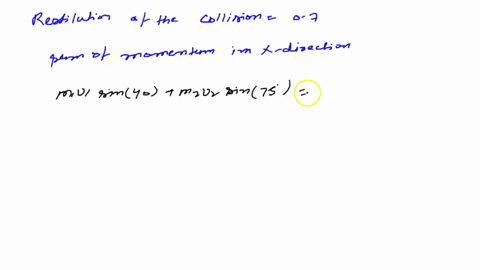 Restitution of the collision = 0.7
sum of momentum in x-direction
m1U1 sin(40) + m2U2 sin(75°) =